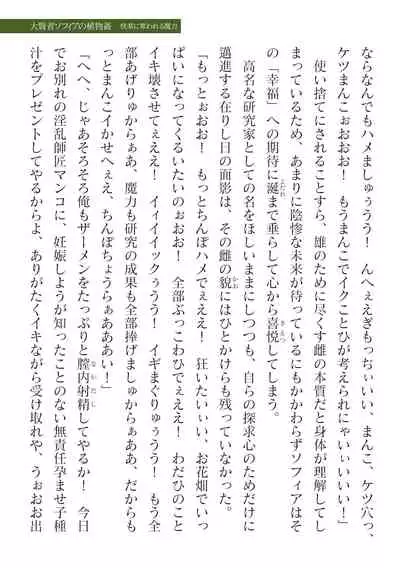 大賢者ソフィアの植物姦 快楽に奪われる魔力
ならなんでもハメましゅぅうう! んへぇえぎもっぢぃいい、まんこ、ケツ穴っ、
ケツまんこぉおおお! もうまんこでイクことひが考えられにゃいぃいいい!」
使い捨てにされることすら、雄のために尽くす雌の本質だと身体が理解してし
まっているため、あまりに陰惨な未来が待っているにもかかわらずソフィアはそ
の「幸福」への期待に涎まで垂らして心から喜悦してしまう。
高名な研究家としての名をほしいままにしつつも、自らの探求心のためだけに
邁進する在りし日の面影は、その雌の貌にはひとかけらも残っていなかった。
「もっとぉおお! もっとちんぽハメでぇええ! 狂いたいぃい、お花畑でいっ
ぱいになってくるいたいのぉおお! 全部ぶっこわひでぇええ! わだひのこと
イキ壊させてぇええ! イィイイックぅうう! イギまぐりゅぅうう! もう全
部あげりゅからぁあ、魔力も研究の成果も全部捧げましゅからぁああ、だからも
っとまんこイかせへぇえ、ちんぽちょうらぁあああい!」
「へへ、じゃあそろそろ俺もザーメンをたっぷりと膣内射精してやるか! 今日
でお別れの淫乱師匠マンコに、妊娠しようが知ったことのない無責任孕ませ子種
汁をプレゼントしてやるからよ、ありがたくイキながら受け取れや、うぉおお出